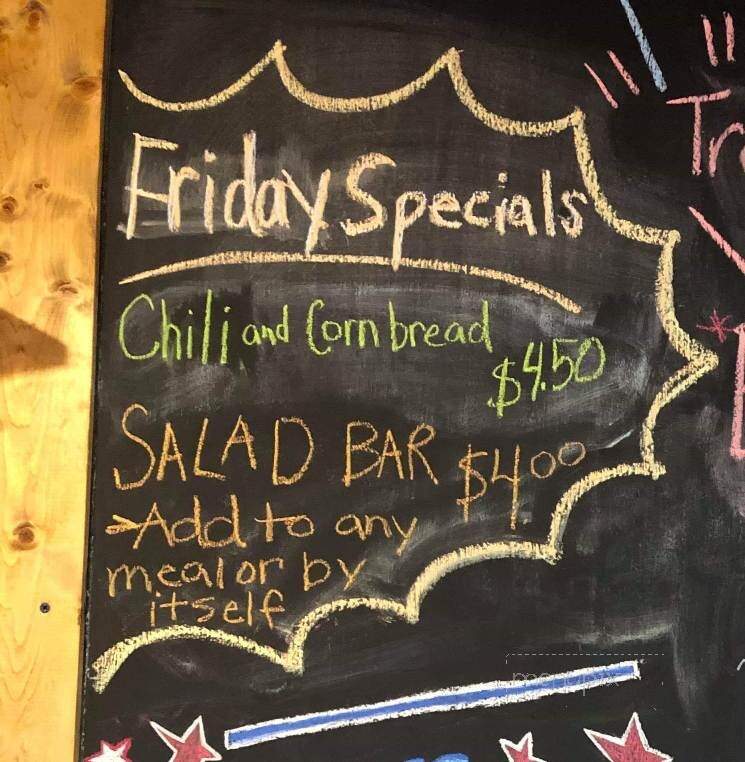 Friday Specials
Chili and Cornbread
$4.50
SALAD BAR $4.00
Add to any
meal or by
itself